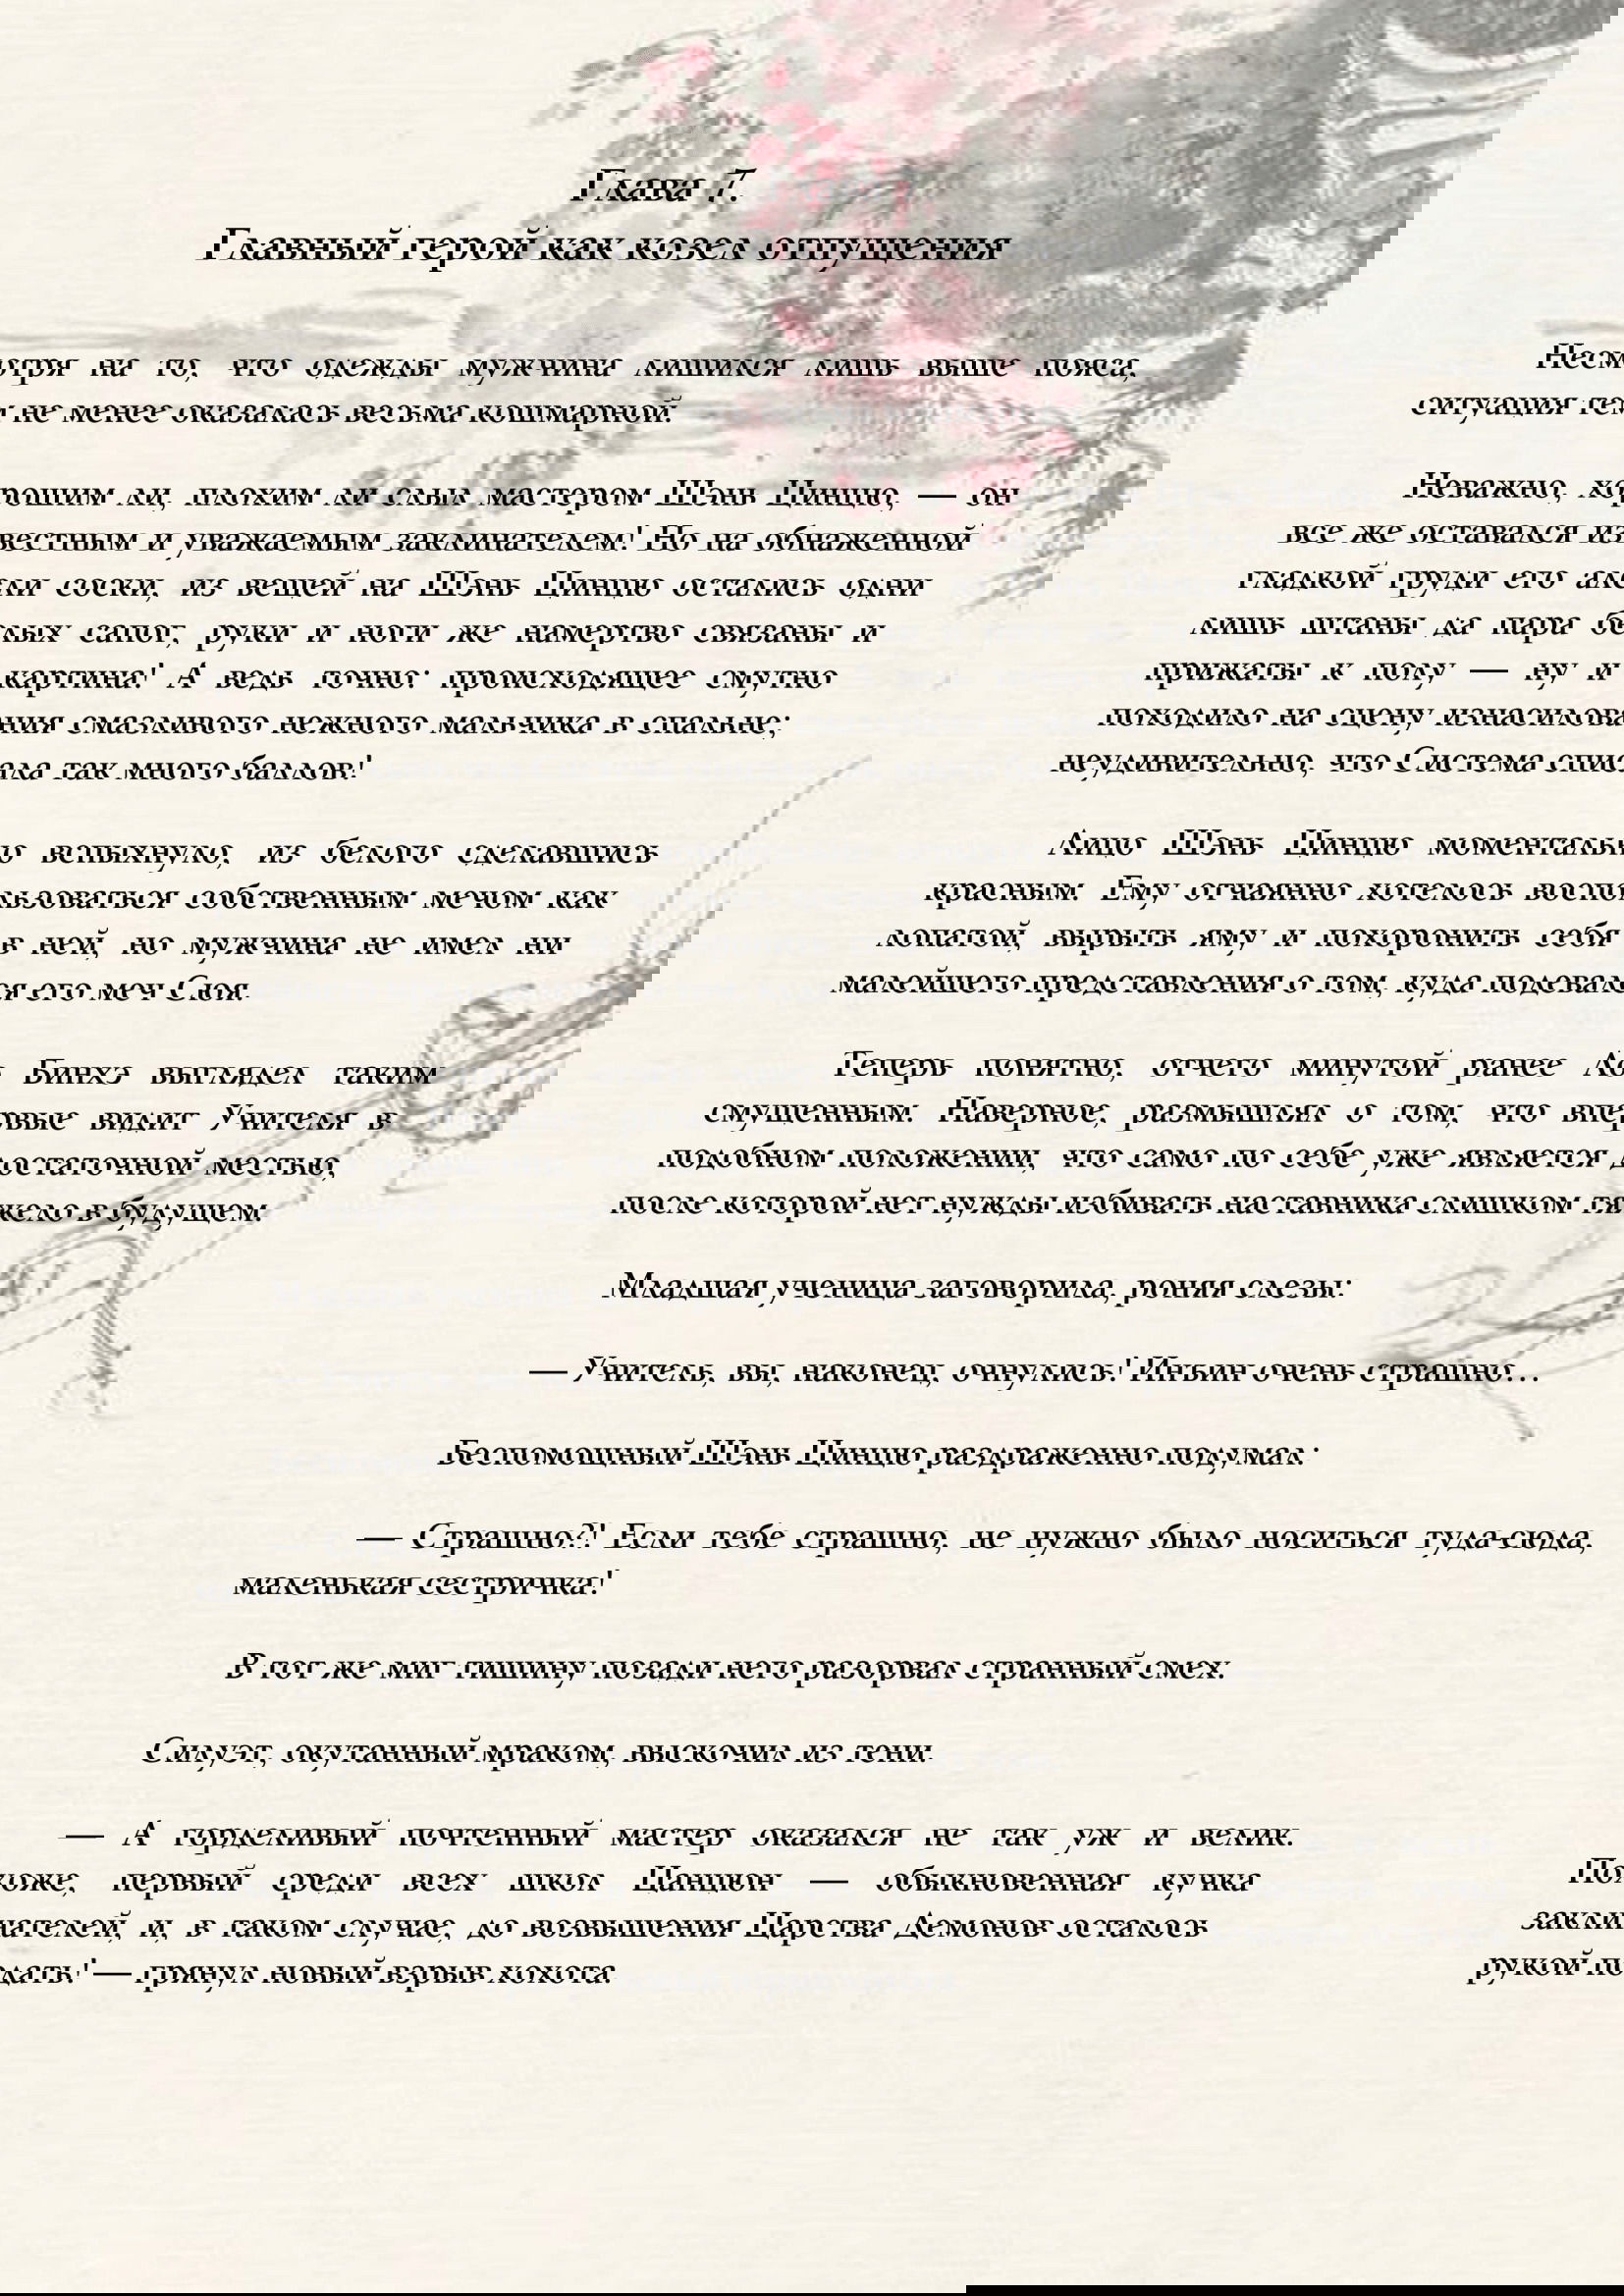 Глава 7.
Главный герой как козел отпущения
Несмотря на то, что одежды мужчина лишился лишь выше пояса,
ситуация тем не менее оказалась весьма кошмарной.
Неважно, хорошим ли, плохим ли слыл мастером Шэнь Цинцю, — он
все же оставался известным и уважаемым заклинателем! Но на обнаженной
гладкой груди его алели соски, из вещей на Шэнь Цинцю остались одни
лишь штаны да пара белых сапог, руки и ноги же намертво связаны и
прижаты к полу — ну и картина! А ведь точно: происходящее смутно
походило на сцену изнасилования смазливого нежного мальчика в спальне;
неудивительно, что Система списала так много баллов!
Лицо Шэнь Цинцю моментально вспыхнуло, из белого сделавшись
красным. Ему отчаянно хотелось воспользоваться собственным мечом как
лопатой, вырыть яму и похоронить себя в ней, но мужчина не имел ни
малейшего представления о том, куда подевался его меч Сюя.
Теперь понятно, отчего минутой ранее Ло Бинхэ выглядел таким
смущенным. Наверное, размышлял о том, что впервые видит Учителя в
подобном положении, что само по себе уже является достаточной местью,
после которой нет нужды избивать наставника слишком тяжело в будущем.
Младшая ученица заговорила, роняя слезы:
— Учитель, вы, наконец, очнулись! Инъин очень страшно…
Беспомощный Шэнь Цинцю раздраженно подумал:
— Страшно?! Если тебе страшно, не нужно было носиться туда-сюда,
маленькая сестричка!
В тот же миг тишину позади него разорвал странный смех.
Силуэт, окутанный мраком, выскочил из тени.
— А горделивый почтенный мастер оказался не так уж и велик.
Похоже, первый среди всех школ Цанцюн — обыкновенная кучка
заклинателей, и, в таком случае, до возвышения Царства Демонов осталось
рукой подать! — грянул новый взрыв хохота.